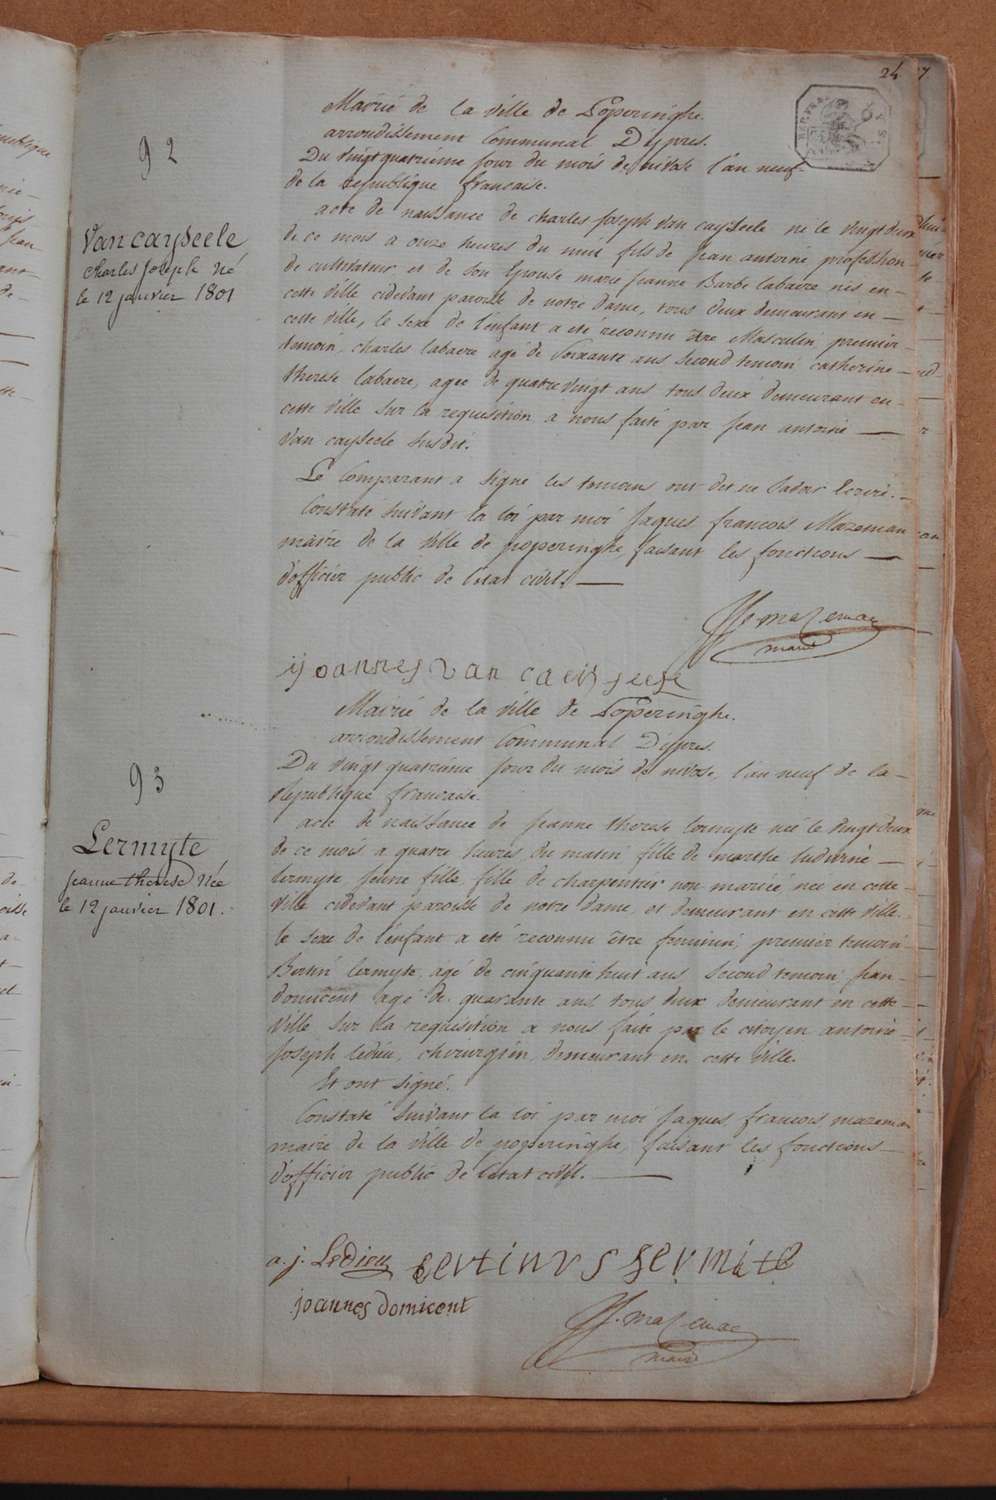 24
92
Mairie de la ville de Poperinghe.
arrondissement Communal D'ypres.
Du vingt quatrième jour du mois de nivose l'an neuf
de la republique francaise.
Van cayseele
charles joseph né
le 12 janvier 1801
acte de naissance de charles joseph van cayseele né le vingt deux
de ce mois a onze heures du nuit fils de jean antoine profession
de cultivateur et de son Epouse marie jeanne Barbe labaere nés en
cette ville cidevant paroisse de notre dame, tous deux demeurant en
cette ville, le sexe de l'enfant a eté reconnu être Masculin premier
temoin, charles labaere agé de soixante ans second temoin catherine
therese labaere, agee de quatre vingt ans tous deux demeurant en
cette ville sur la requisition a nous faite par jean antoine
van cayseele susdit.
Le Comparant a signé les temoins ont dit ne savoir Ecrire.
Constaté suivant la loi par moi jaques francois Mazeman
maire de la ville de poperinghe, faisant les fonctions
d'officier public de letat civil.
JF. mazeman
maire
ijoannes van caeyseele
93
Mairie de la ville de Poperinghe.
arrondissement Communal D'ypres.
Du vingt quatrième jour du mois de nivose, l'an neuf de la
republique francaise.
Lermyte
jeanne therese née
le 12 janvier 1801.
acte de naissance de jeanne therese lermyte née le vingt deux
de ce mois a quatre heures du matin fille de marthe ludovine
lermyte jeune fille, fille de charpentier non mariée née en cette
ville cidevant paroisse de notre dame, et demeurant en cette ville.
le sexe de l'enfant a eté reconnu être feminin, premier temoin
Bertin lermyte, agé de cinquante huit ans second temoin jean
domicent agé de quarante ans tous deux demeurant en cette
ville sur la requisition a nous faite par le citoyen antoine
joseph ledieu, chirurgien, demeurant en cette ville.
Et ont signé.
Constaté suivant la loi par moi jaques francois mazeman
maire de la ville de poperinghe, faisant les fonctions
d'officier public de letat civil.
a. j. Ledieu bertinus lermite
joannes domicent
JF. mazeman
maire